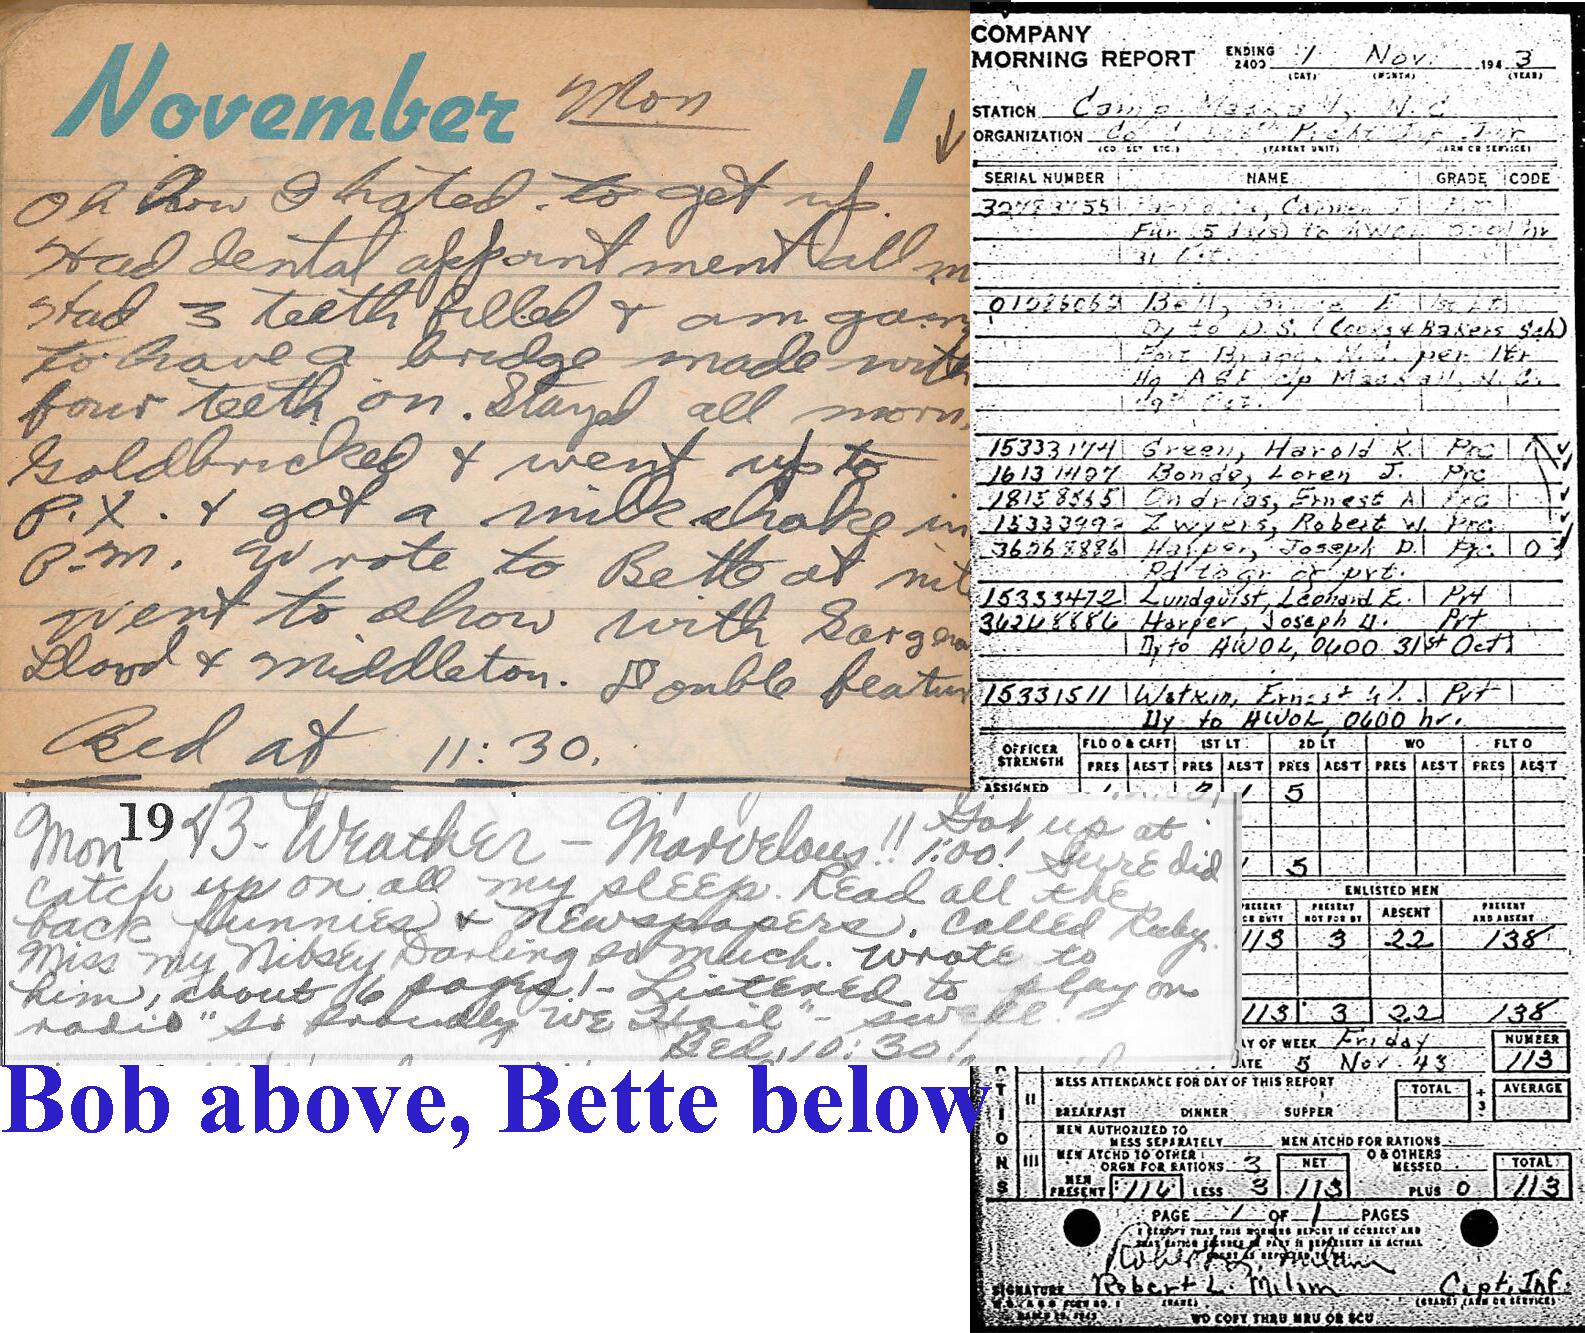 November Mon 1
Oh how I hated to get up.
Had dental appointment all m
Had 3 teeth filled & am going
to have a bridge made with
four teeth on. Stayed all morn
Goldbricked & went up to
P.X. & got a milk shake in
P.M. Wrote to Bette at nit
went to show with Sargen
Lloyd & Middleton. Double featur
Bed at 11:30.
Mon 1943 - Weather - Marvelous!! Got up at
1:00! Sure did
catch up on all my sleep. Read all the
back funnies & newspapers. called Ruby.
Miss my Nibsey Darling so much. wrote to
him, about 16 pages! - Listened to play on
radio "So Proudly We Hail" - swell!
Bed, 10:30!
Bob above, Bette below
COMPANY
MORNING REPORT ENDING 2400 1 Nov. 1943
(DAY) (MONTH) (YEAR)
STATION Camp Mackall, N.C.
ORGANIZATION Co
(CO. DET. ETC.) (PARENT UNIT) (ARM OR SERVICE)
SERIAL NUMBER NAME GRADE CODE
Fur (5 days) to AWOL hr
31 Oct.
Bell, E
Dy to D.S. (Cooks & Bakers Sch)
Fort Bragg, N.C. per ltr
Hq A&F Cp Mackall, N.C.
29th Oct.
15333174 Green, Harold K. Pfc
16131407 Bonde, Loren J. Pfc
18158565 Ondrias, Ernest A Pfc
Zwyers, Robert W. Pfc
Harper, Joseph D. Pfc. 03
Rd to gr of pvt.
15333472 Lundquist, Leonard E. Pvt
36268886 Harper, Joseph D. Pvt
Dy to AWOL, 0600 31st Oct
15331511 Watkin, Ernest W. Pvt
Dy to AWOL, 0600 hr.
OFFICER STRENGTH FLD O & CAPT 1ST LT 2D LT WO FLT O
PRES ABS'T PRES ABS'T PRES ABS'T PRES ABS'T PRES ABS'T
ASSIGNED 5
5
ENLISTED MEN
PRESENT NOT FOR DY ABSENT PRESENT AND ABSENT
113 3 22 138
113 3 22 138
AY OF WEEK Friday NUMBER
ATE 5 Nov 43 113
II MESS ATTENDANCE FOR DAY OF THIS REPORT TOTAL ÷ 3 AVERAGE
BREAKFAST DINNER SUPPER
III MEN AUTHORIZED TO MESS SEPARATELY MEN ATCHD FOR RATIONS
MEN ATCHD TO OTHER ORGN FOR RATIONS 3 NET O & OTHERS MESSED TOTAL
MEN PRESENT 116 LESS 3 113 PLUS 0 113
PAGE 1 OF 1 PAGES
I CERTIFY THAT THIS MORNING REPORT IS CORRECT AND
Robert L. Milam
SIGNATURE Robert L. Milam Capt, Inf.
(NAME) (GRADE) (ARM OR SERVICE)
NO COPY THRU MRU OR SCU